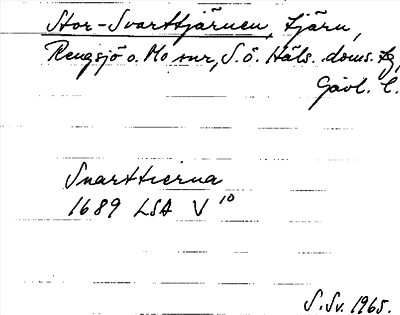 Stor-Svarttjärnen, tjärn,
Rengsjö o. Mo snr, S.ö. Häls. doms. fg,
Gävl. l.
Svarttierna
1689 LSA V 10
S. Sv. 1965.